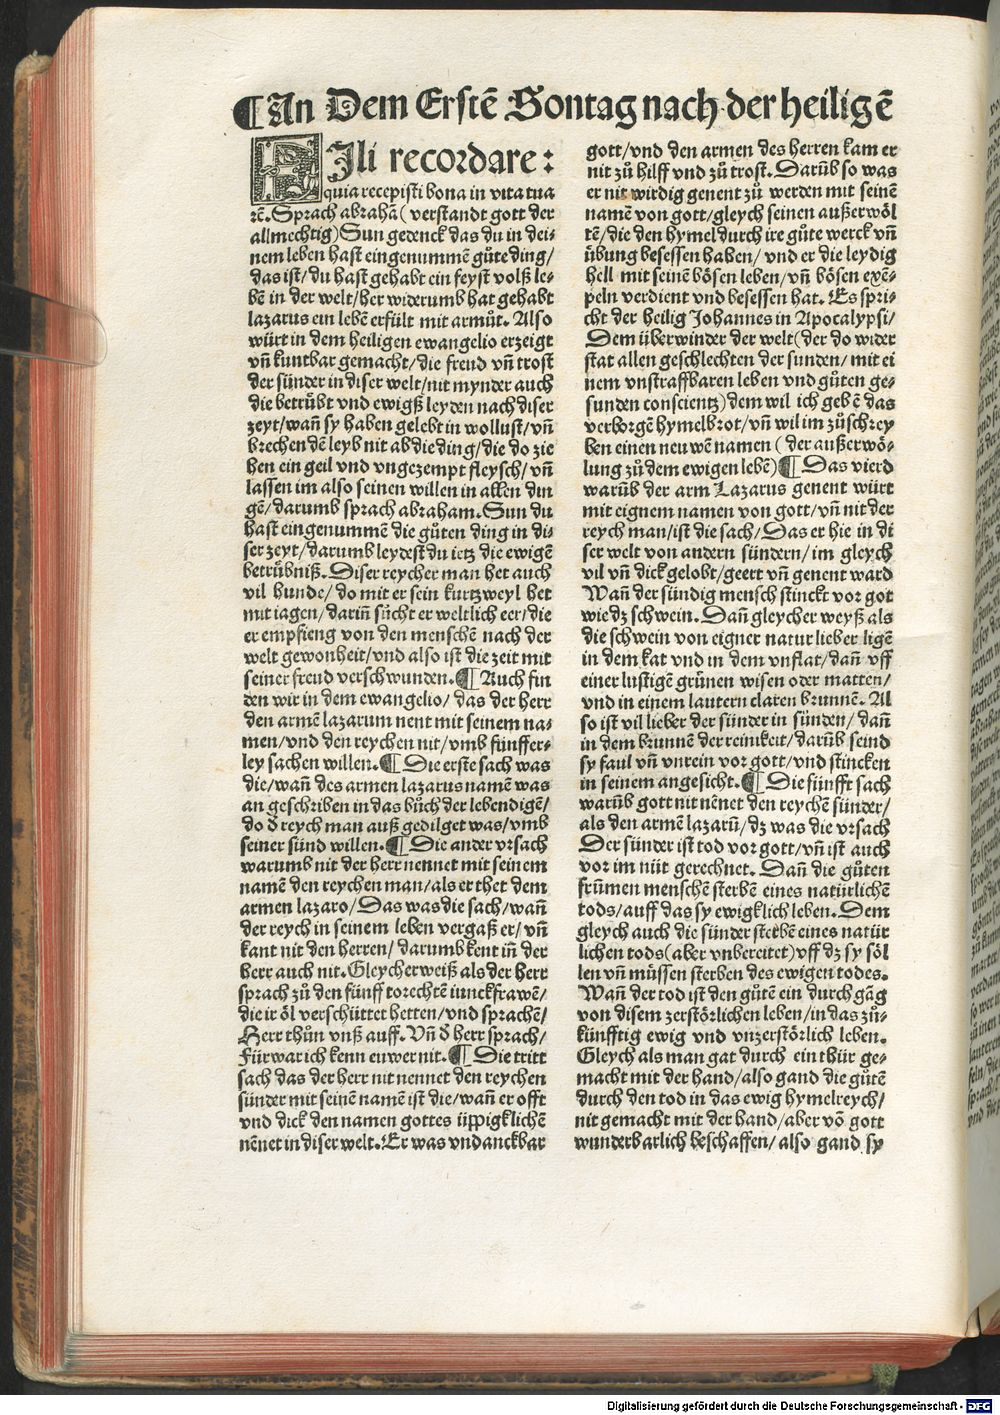 ¶An Dem Erstē Sontag nach der heiligē
FIli recordare:
quia recepisti bona in vita tua
rē. Sprach abrahā (verstandt gott der
allmechtig) Sun gedenck das du in dei-
nem leben hast eingenummē gůte ding/
das ist/du hast gehabt ein feyst volß le-
bē in der welt/her widerumb hat gehabt
lazarus ein lebē erfült mit armůt. Also
würt in dem heiligen ewangelio erzeigt
vñ kuntbar gemacht/die freud vñ trost
der sünder in diser welt/nit mynder auch
die betrůbt vnd ewigß leyden nach diser
zeyt/wañ sy haben gelebt in wollust/vñ
brechen dē leyb nit ab die ding/die do zie
hen ein geil vnd vngezempt fleysch/vñ
lassen im also seinen willen in allen din
gē/darumb sprach abraham. Sun du
hast eingenummē die gůten ding in di-
ser zeyt/darumb leydest du ietz die ewigē
betrůbniß. Diser reycher man het auch
vil hunde/do mit er sein kurtzweyl het
mit iagen/dariñ sůcht er weltlich eer/die
er empfieng von den menschē nach der
welt gewonheit/vnd also ist die zeit mit
seiner freud verschwunden. ¶ Auch fin
den wir in dem ewangelio/das der herr
den armē lazarum nent mit seinem na-
men/vnd den reychen nit/vmb fünffer-
ley sachen willen. ¶ Die erste sach was
die/wañ des armen lazarus namē was
an geschriben in das bůch der lebendigē/
do d̄ reych man auß gedilget was/vmb
seiner sünd willen. ¶ Die ander vrsach
warumb nit der herr nennet mit seinem
namē den reychen man/als er thet dem
armen lazaro/Das was die sach/wañ
der reych in seinem leben vergaß er/vñ
kant nit den herren/darumb kent iñ der
herr auch nit. Gleycherweiß als der herr
sprach zů den fünff torechtē iunckfrawē/
die ir öl verschüttet hetten/vnd sprachē/
Herr thůn vnß auff. Vñ d̄ herr sprach/
Fürwar ich kenn euwer nit. ¶ Die tritt
sach das der herr nit nennet den reychen
sünder mit seinē namē ist die/wañ er offt
vnd dick den namen gottes üppigklichē
nēnet in diser welt. Er was vndanckbar
gott/vnd den armen des herren kam er
nit zů hilff vnd zů trost. Darūb so was
er nit wirdig genent zů werden mit seinē
namē von gott/gleych seinen außerwöl
tē/die den hymel durch ire gůte werck vñ
übung besessen haben/vnd er die leydig
hell mit seinē bösen leben/vñ bösen exē-
peln verdient vnd besessen hat. Es spri-
cht der heilig Johannes in Apocalypsi/
Dem überwinder der welt (der do wider
stat allen geschlechten der sunden/mit ei
nem vnstraffbaren leben vnd gůten ge-
sunden conscientz) dem wil ich gebē das
verborgē hymelbrot/vñ wil im zůschrey
ben einen neuwē namen (der außerwö-
lung zů dem ewigen lebē) ¶ Das vierd
warūb der arm Lazarus genent würt
mit eignem namen von gott/vñ nit der
reych man/ist die sach/Das er hie in di
ser welt von andern sündern/im gleych
vil vñ dick gelobt/geert vñ genent ward
Wañ der sündig mensch stinckt vor got
wie dz schwein. Dañ gleycher weyß als
die schwein von eigner natur lieber ligē
in dem kat vnd in dem vnflat/dañ vff
einer lustigē grünen wisen oder matten/
vnd in einem lautern claren brunnē. Al
so ist vil lieber der sünder in sünden/dañ
in dem brunnē der reinikeit/darūb seind
sy faul vñ vnrein vor gott/vnd stincken
in seinem angesicht. ¶ Die fünfft sach
warūb gott nit nēnet den reychē sünder/
als den armē lazarū/dz was die vrsach
Der sünder ist tod vor gott/vñ ist auch
vor im nüt gerechnet. Dañ die gůten
frūmen menschē sterbē eines natürlichē
tods/auff das sy ewigklich leben. Dem
gleych auch die sünder sterbē eines natür
lichen tods (aber vnbereitet) vff dz sy söl
len vñ müssen sterben des ewigen todes.
Wañ der tod ist den gůtē ein durchgāg
von disem zerstörlichen leben/in das zů-
künfftig ewig vnd vnzerstörlich leben.
Gleych als man gat durch ein thür ge-
macht mit der hand/also gand die gůtē
durch den tod in das ewig hymelreych/
nit gemacht mit der hand/aber vō gott
wunderbarlich beschaffen/also gand sy
Digitalisierung gefördert durch die Deutsche Forschungsgemeinschaft - DFG